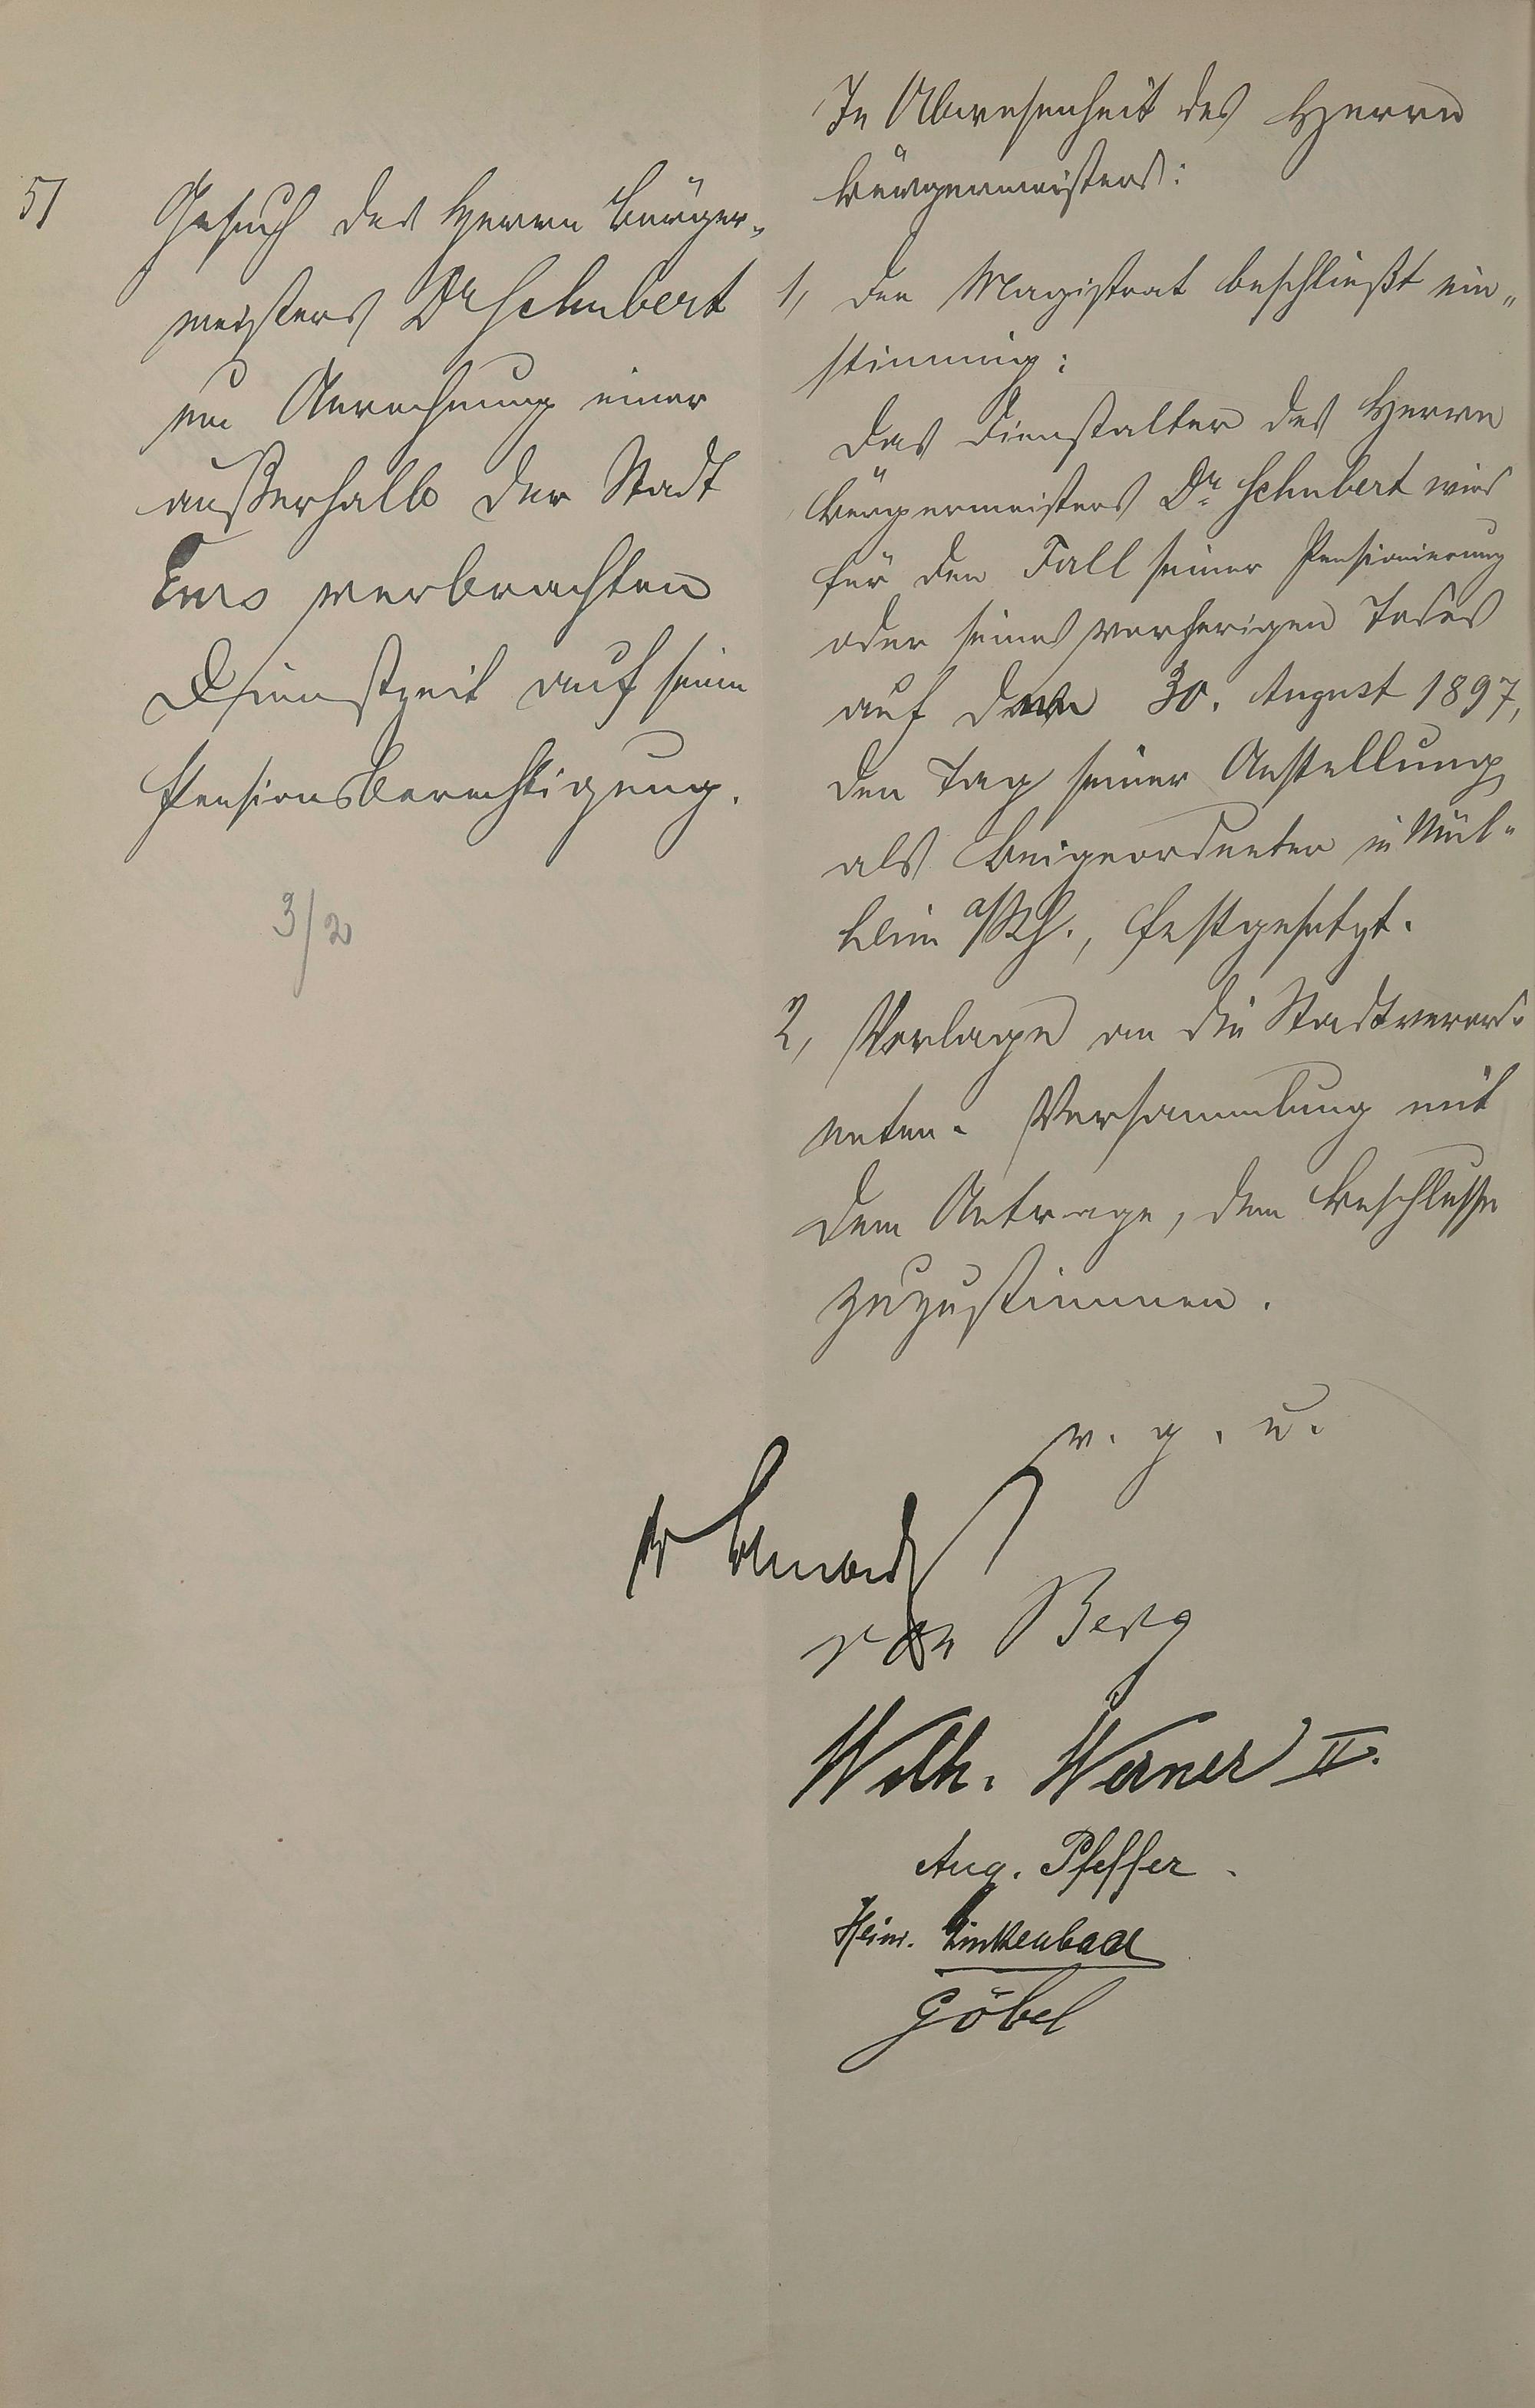 51
Gesuch des Herrn Bürger-
meisters Dr Schubert
um Anrechnung einer
außerhalb der Stadt
Ems verbrachten
Dienstzeit auf seine
Pensionsberechtigung.
3/2
In Abwesenheit des Herrn
Bürgermeisters:
1, Der Magistrat beschließt ein-
stimmig:
Das Dienstalter des Herrn
Bürgermeisters Dr. Schubert wird
für den Fall seiner Pensionierung
oder seines vorherigen Todes
auf den 30. August 1897,
den Tag seiner Anstellung
als Beigeordneter in Mül-
heim a/Rh., festgesetzt.
2, Vorlage an die Stadtverord-
neten-Versammlung mit
dem Antrage, dem Beschlusse
zuzustimmen.
v. g. u.
van Berg
Wilh. Werner II.
Aug. Pfeffer.
Heinr. Linkenbach
Göbel